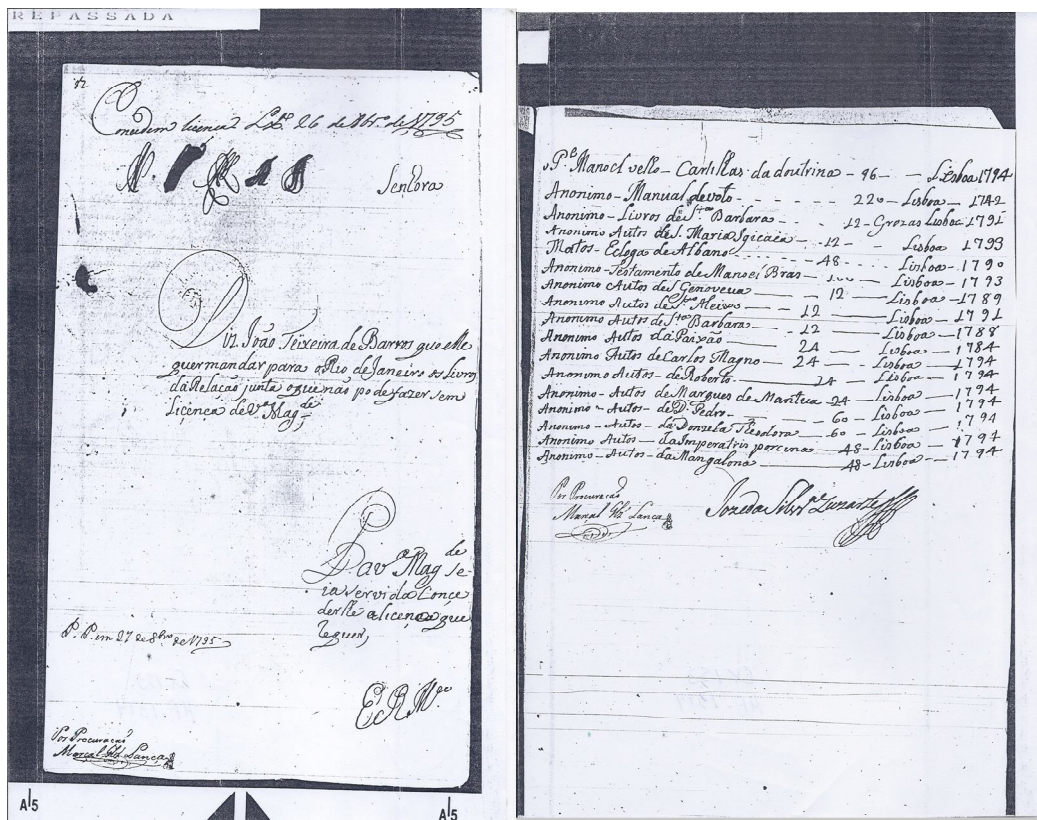 REPASSADA
Concedem licença Lxª 26 de 8br.º de 1795
Senhora
Diz João Teixeira de Barros que elle
quer mandar para o Rio de Janeiro os Livros
da Relação junta o que não pode fazer sem
Licença de V. Magde
P. a V. Magde Se-
ja servida Conce
derlhe a licença que
requer,
P. P. em 27 de 8bro de 1795
E R Mce
Por Procuração
Marçal Lança
A5
A5
Pe Manoel vello - Cartilhas da doutrina - 96 - - Lisboa 1794
Anonimo - Manual devoto - - - 220 - Lisboa - 1742
Anonimo - Livros de Sta Barbara - - - 12 - Grozas Lisboa 1791
Anonimo Autos de S. Maria Igicaca - 12 - - Lisboa 1793
Matos - Ecloga de Albano - - - 48 - - - Lisboa - 1790
Anonimo - Testamento de Manoel Bras - - - Lisboa - 1793
Anonimo Autos de S. Genoveva - 12 - Lisboa - 1789
Anonimo Autos de Sto Aleixo - 12 - Lisboa - 1791
Anonimo Autos de Sta Barbara - 12 - Lisboa - 1788
Anonimo Autos da Paixão - 24 - Lisboa - 1784
Anonimo Autos de Carlos Magno - 24 - Lisboa - 1794
Anonimo Autos - de Roberto - 24 - Lisboa - 1794
Anonimo - Autos de Marques de Mantua - 24 - Lisboa - 1794
Anonimo - Autos - de D. Pedro - - 60 - Lisboa - 1794
Anonimo - Autos - da Donzela Theodora - 60 - Lisboa - 1794
Anonimo Autos - da Imperatris porcina - 48 - Lisboa - 1794
Anonimo - Autos - da Mangalona - 48 - Lisboa - 1794
Por Procuração
Marçal Lança